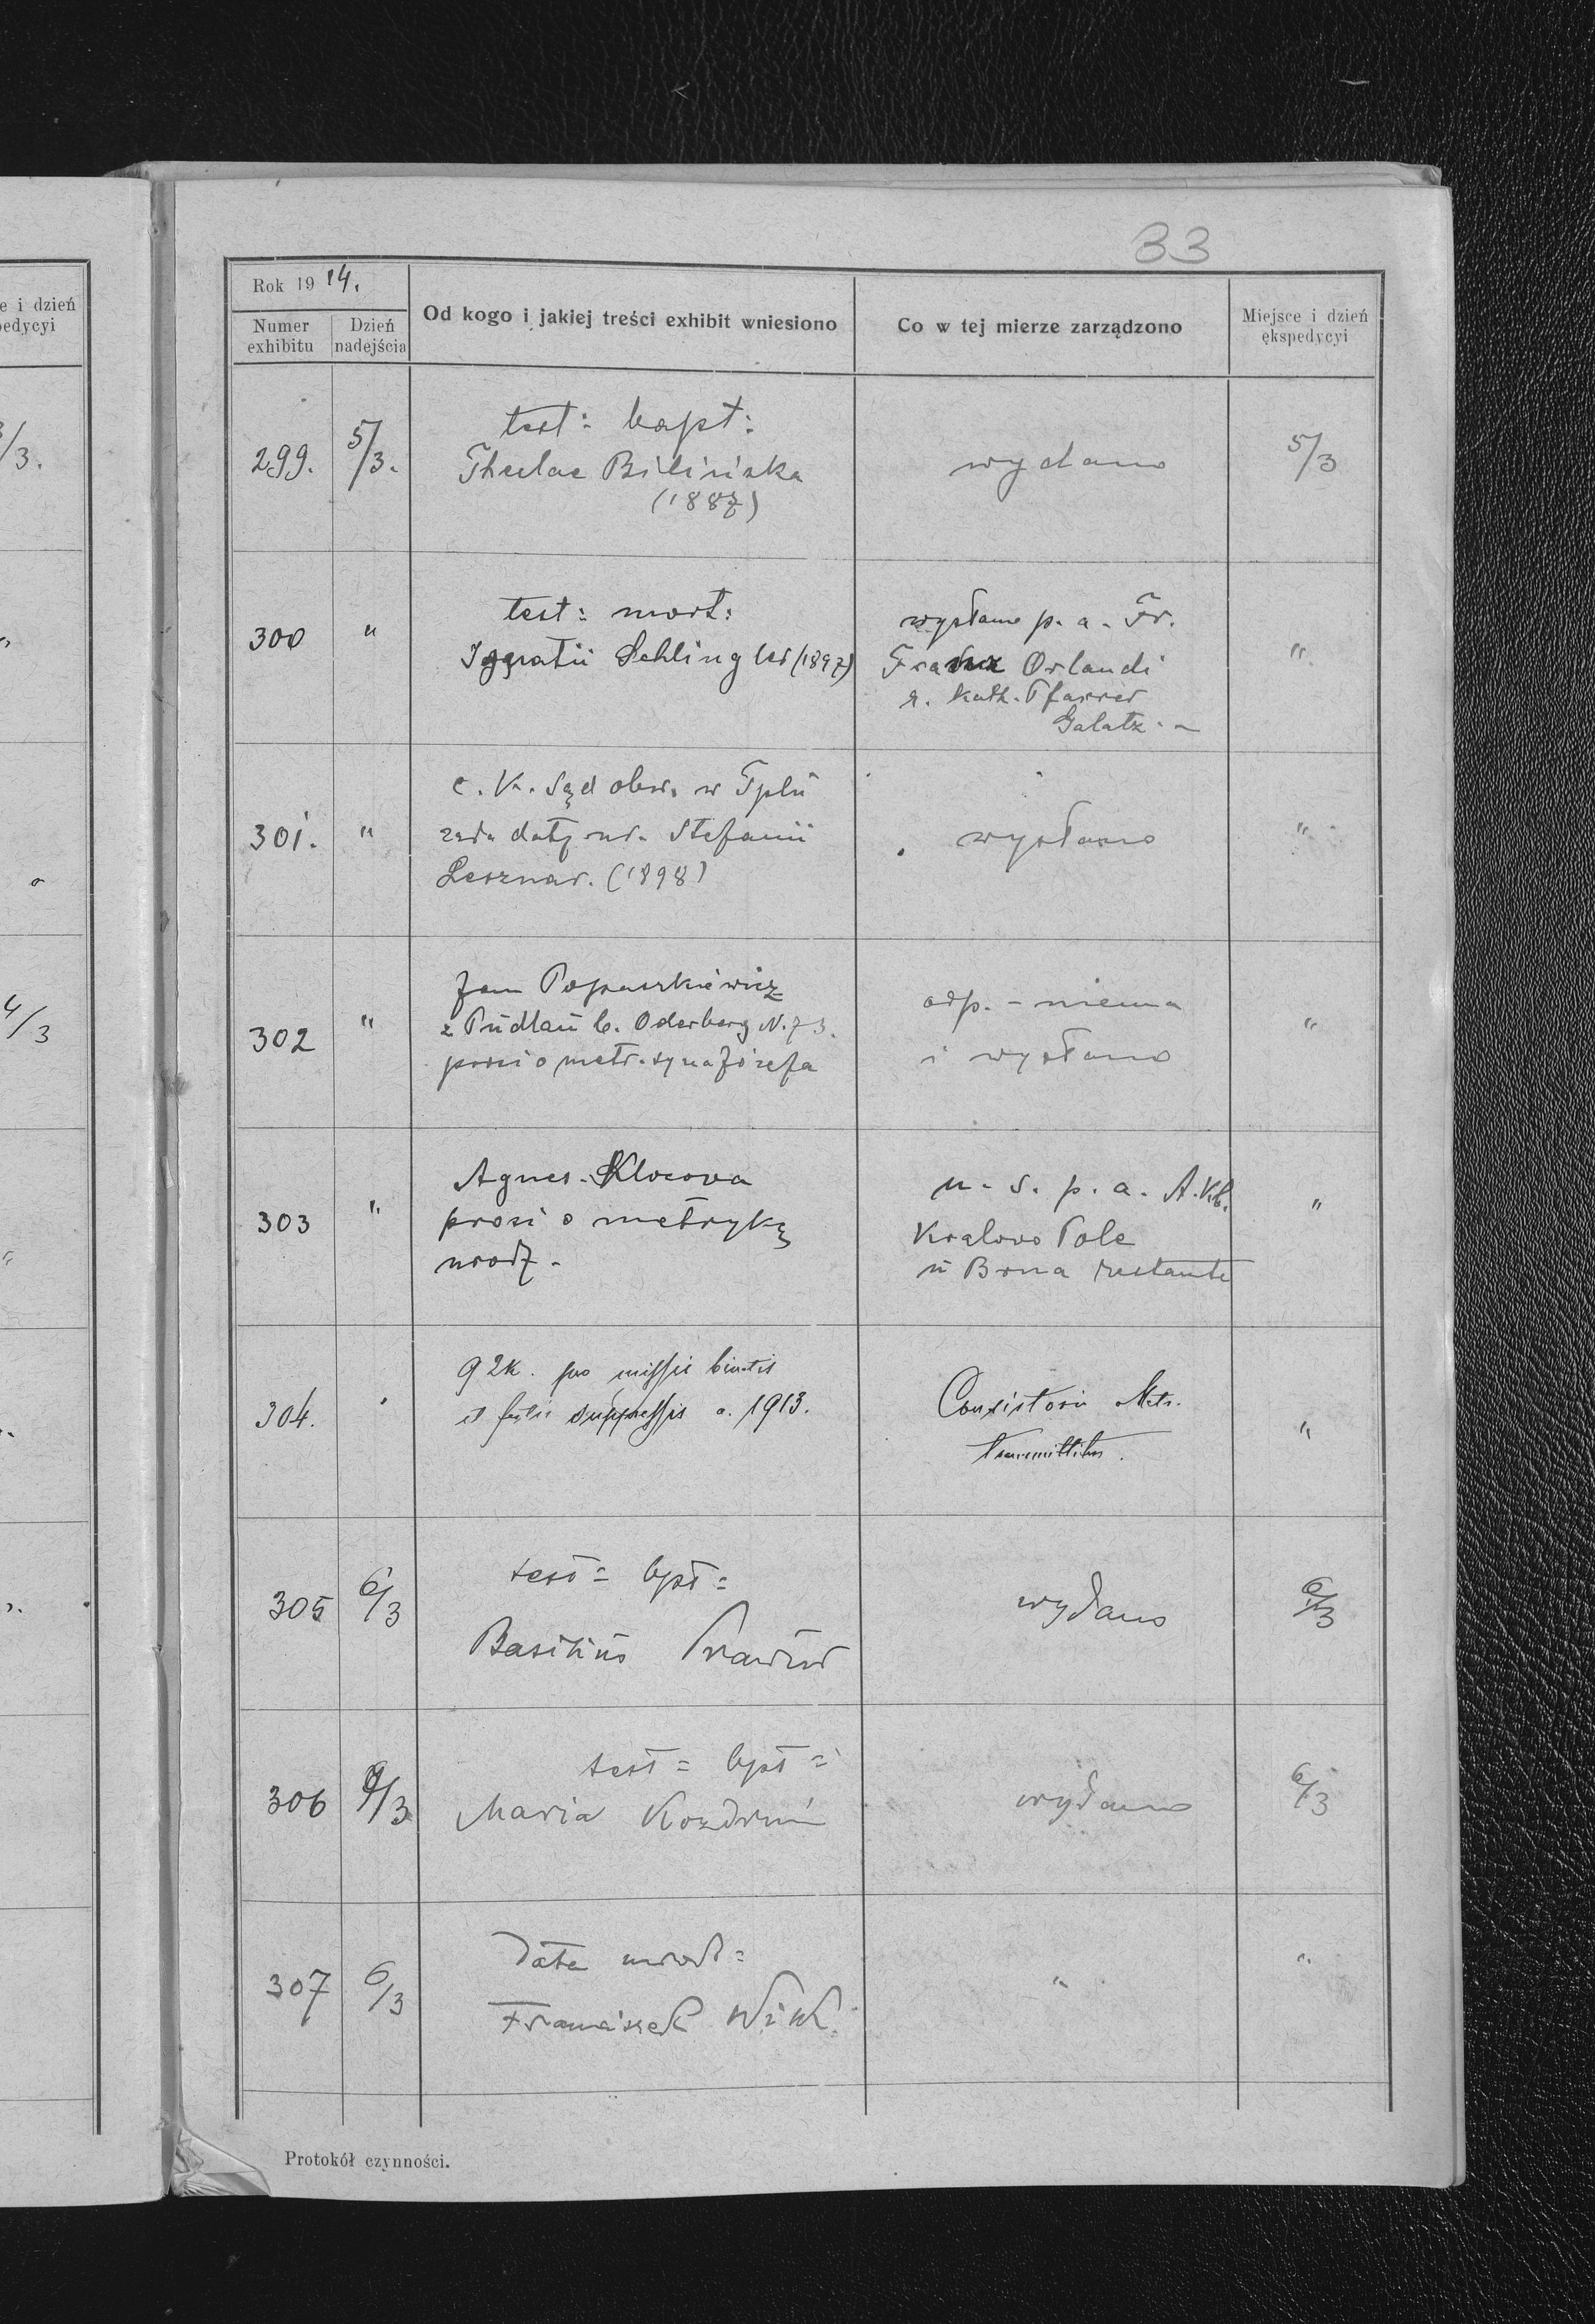 e i dzień
pedycyi
/3.
4/3
33
Rok 1914.
Numer exhibitu
Dzień nadejścia
Od kogo i jakiej treści exhibit wniesiono
Co w tej mierze zarządzono
Miejsce i dzień ekspedycyi
299. 5/3.
test: bapt:
Theclae Bilińska
(1887)
wydano
5/3
300 "
test: mort:
Ignatii Schlingler (1897)
wysłano p. a. Fr.
Franz Orlandi
r. kath. Pfarrer
Galatz. -
"
301. "
c. k. Sąd obw. w Tplu
datę ur. Stefanii
(1898)
wysłano
"
302 "
Jan Popuszkiewicz
z Pudlau b. Oderberg N. 73.
prosi o metr. syna Józefa
odp. - niema
i wysłano
"
303 "
Agnes. Klocova
prosi o metrykę
urodz.
n. s. p. a. A. Kl.
Kralovo Pole
u Brna restante
"
304.
92k. pro missis binatis
et festis suppressis a. 1913.
Consistorio Metr.
transmittitur.
"
305 6/3
test= bpt=
Basilius
wydano
6/3
306 6/3
test= bpt=
Maria
wydano
6/3
307 6/3
Data urodz=
Franciszek
"
"
Protokół czynności.